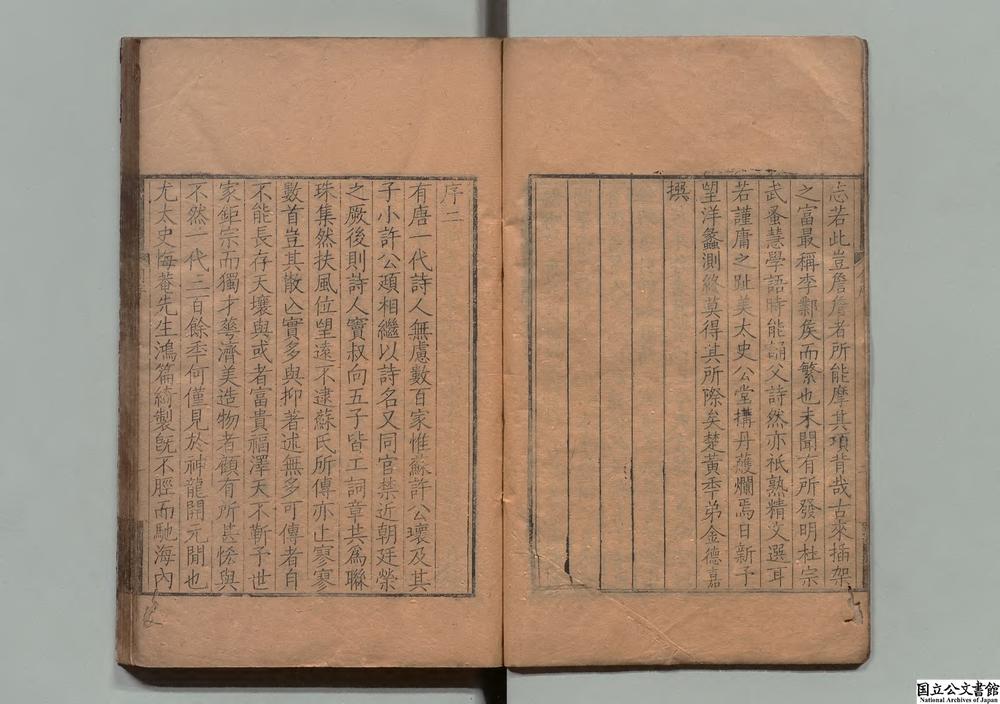 志若此豈詹詹者所能摩其項背哉古來插架
之富最稱李鄴矦而繁也未聞有所發明杜宗
武蚤慧學語時能誦父詩然亦祇熟精文選耳
若謹庸之趾美太史公堂構丹雘爛焉日新予
望洋蠡測終莫得其所際矣楚黃年弟金德嘉
撰
序二
有唐一代詩人無慮數百家惟蘇許公瓌及其
子小許公頲相繼以詩名又同官禁近朝廷榮
之厥後則詩人竇叔向五子皆工詞章共爲聯
珠集然扶風位望遠不逮蘇氏所傳亦止寥寥
數首豈其散亾實多與抑著述無多可傳者自
不能長存天壤與或者富貴福澤天不靳予世
家鉅宗而獨才蕚濟美造物者顧有所甚恡與
不然一代三百餘秊何僅見於神龍開元閒也
尤太史悔菴先生鴻篇綺製旣不脛而馳海內
国立公文書館
National Archives of Japan